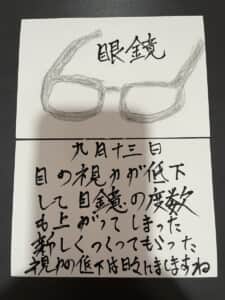 眼鏡
九月十三日
目の視力が低下
して目鏡の度数
も上がってしまった
新しくつくってもらった
視力の低下は日々にましますね